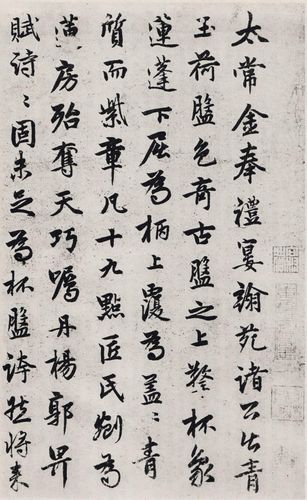 太常金奉禮宴翰苑諸公出青
玉荷盤色奇古盤之上鏨杯象
蓮蓬下屈為柄上覆為蓋〻青
質而紫章凡十九點匠氏為
蓮房殆奪天巧囑丹楊郭畀
賦詩〻固未足為杯盤誇然將来